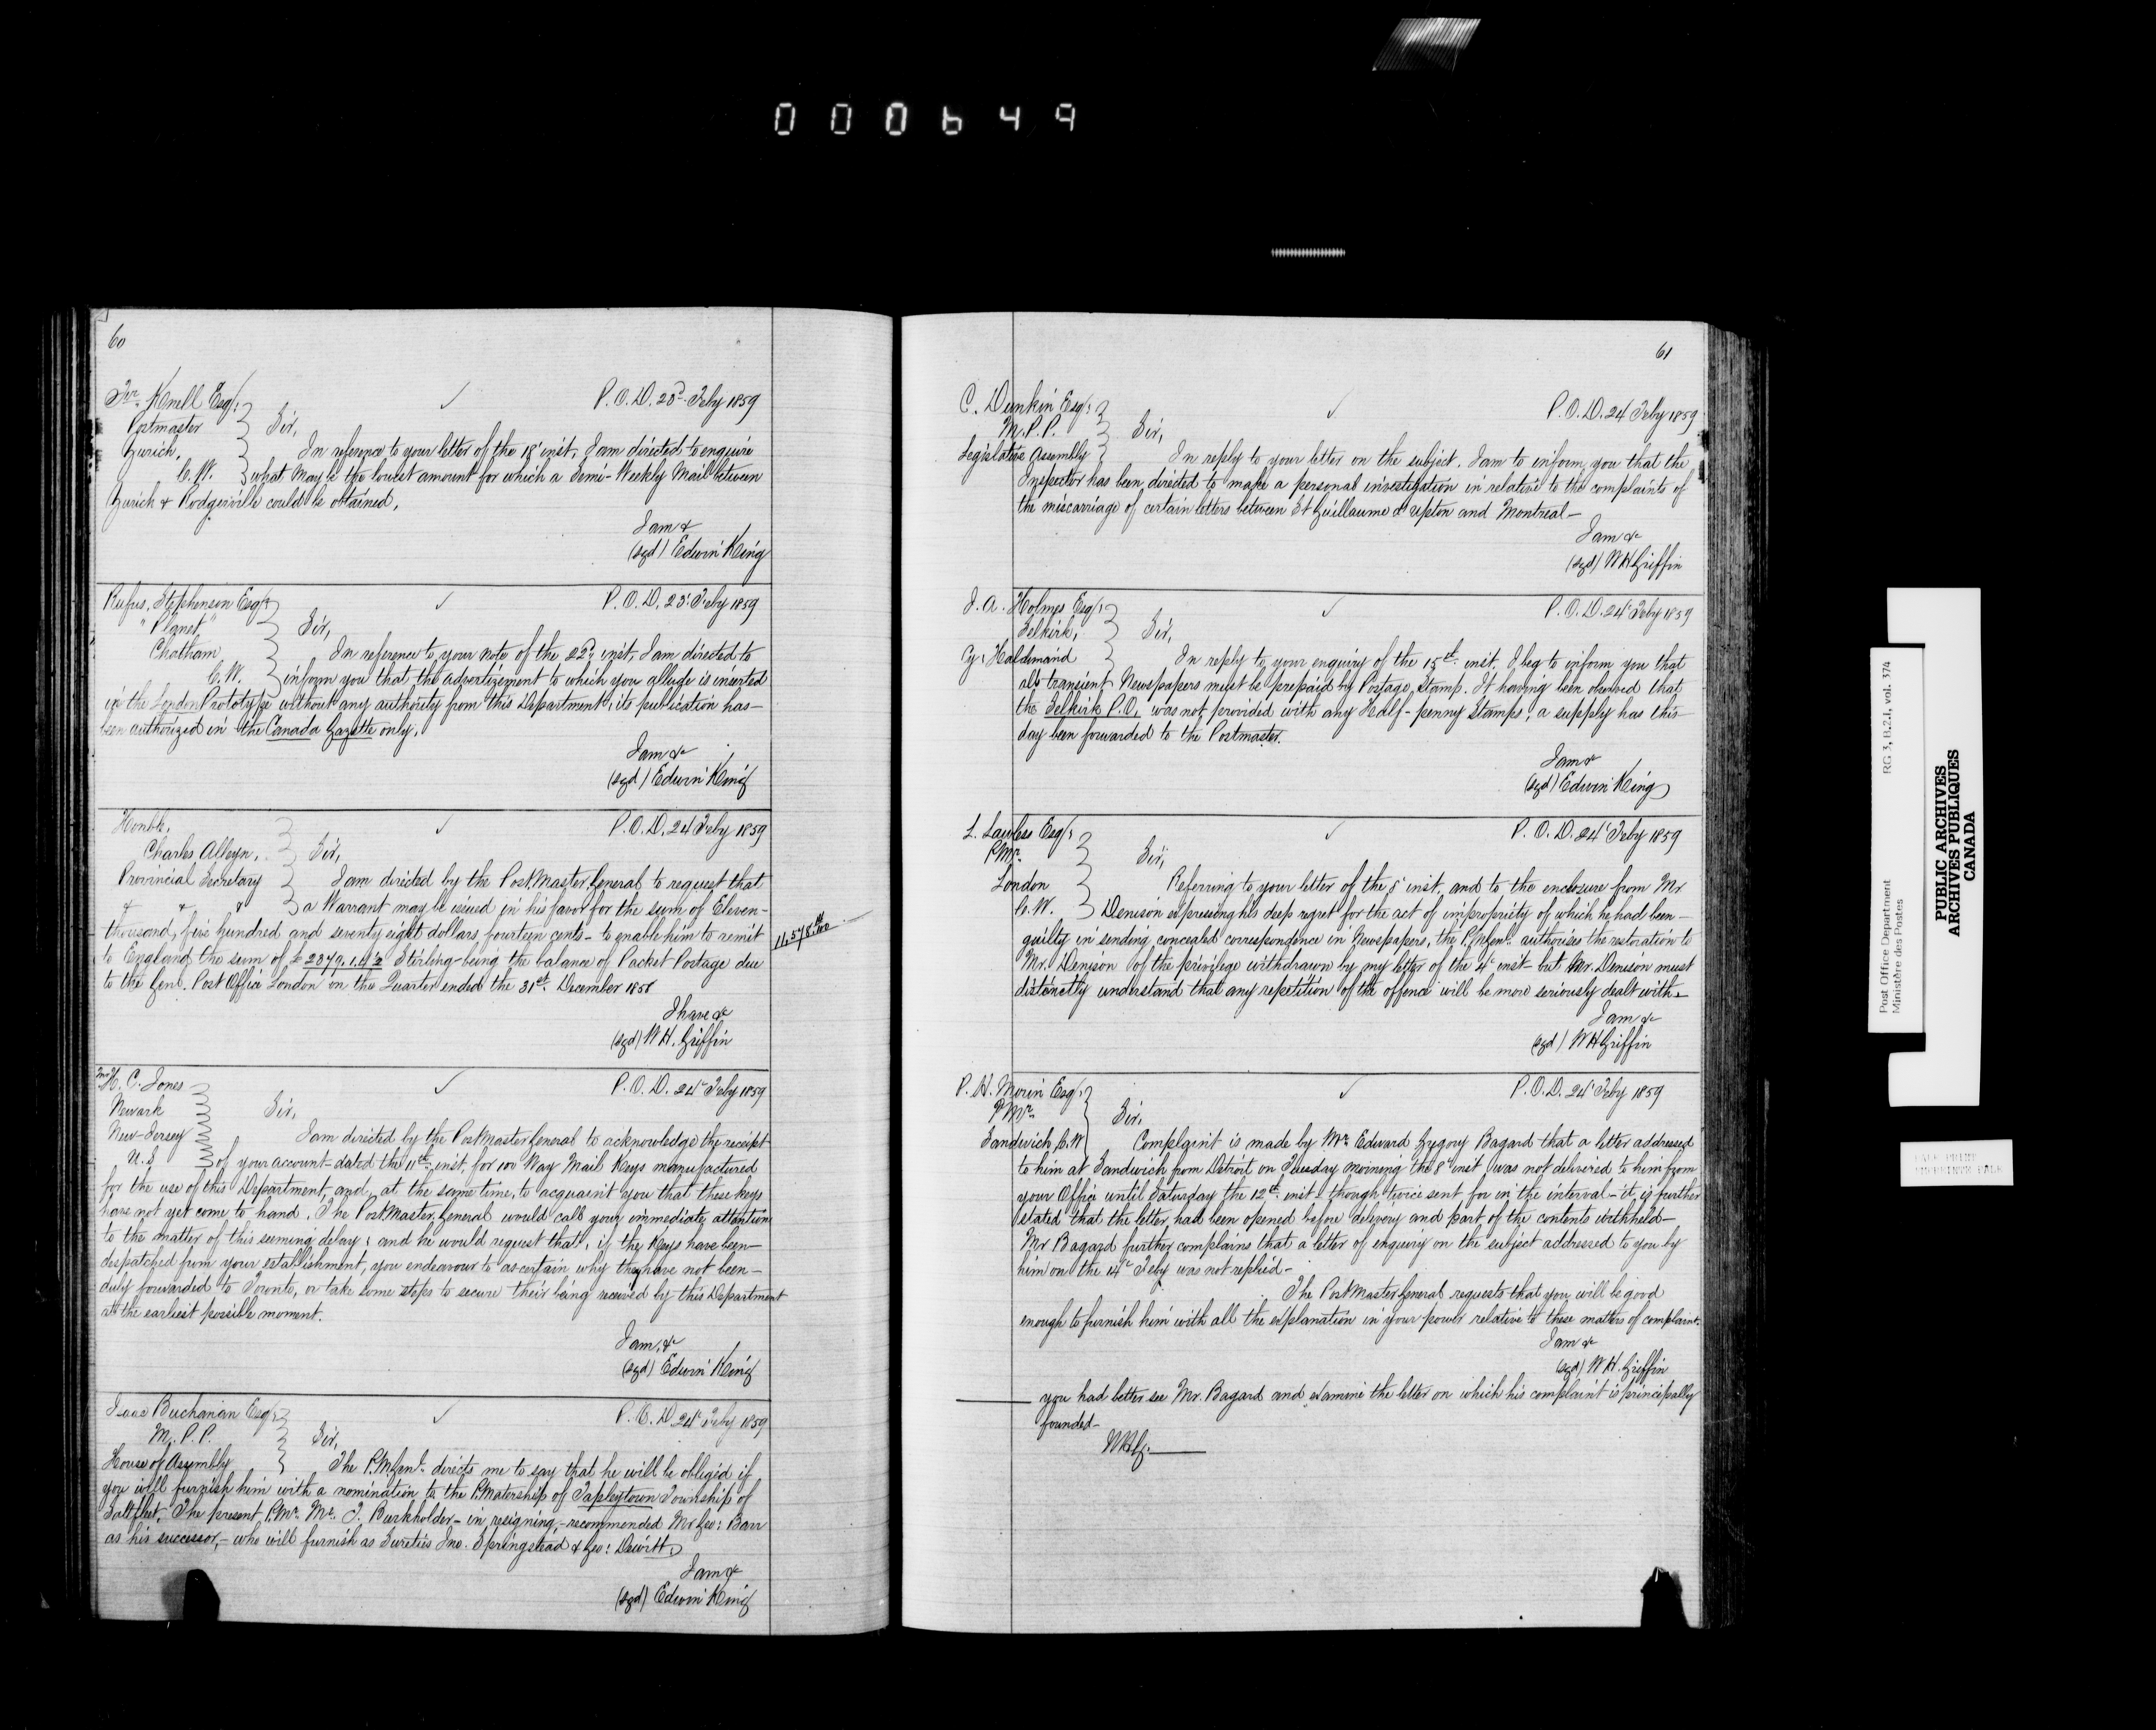 000649
60
Knell Esq:
P.O.D. 23d Feby 1859
Postmaster
Sir,
Zurich,
In reference to your letter of the 18 inst, I am directed to enquire
C.W.
what may be the lowest amount for which a Semi-Weekly Mail between
Zurich & Rodgerville could be obtained,
I am &
(sgd) Edwin King
Rufus Stephenson Esqr
P.O.D. 23 Feby 1859
"Planet"
Sir,
Chatham
In reference to your note of the 22d inst, I am directed to
C.W.
inform you that the advertizement to which you allude is inserted
in the London Prototype without any authority from this Department, its publication has
been authorized in the Canada Gazette only.
I am &c
(sgd) Edwin King
Honble,
P.O.D. 24 Feby 1859
Charles Alleyn,
Sir,
Provincial Secretary
I am directed by the PostMaster General to request that
& & &
a Warrant may be issued in his favor for the sum of Eleven-
thousand, five hundred and seventy eight dollars fourteen cents - to enable him to remit
11,578.14/100
to England the sum of £2379.1.4½ Sterling - being the balance of Packet Postage due
to the Genl. Post Office London in the Quarter ended the 31st December 1858
I have &c
(sgd) W H. Griffin
Mr H. C. Jones
P.O.D. 24 Feby 1859
Newark
Sir,
New-Jersey
I am directed by the PostMaster General to acknowledge the receipt
U.S
of your account dated the 11th inst, for 100 Way Mail Keys manufactured
for the use of this Department, and, at the same time, to acquaint you that these keys
have not yet come to hand. The PostMaster General would call your immediate attention
to the matter of this seeming delay; and he would request that, if the Keys have been-
despatched from your establishment, you endeavour to ascertain why they have not been-
duly forwarded to Toronto, or take some steps to secure their being received by this Department
at the earliest possible moment.
I am, &
(sgd) Edwin King
Isaac Buchanan Esqr
P.O.D. 24 Feby 1859
M.P.P.
Sir,
House of Assembly
The P.M.Genl. directs me to say that he will be obliged if
you will furnish him with a nomination to the P.Matership of Tapleytown Township of
Saltfleet, The present P.Mr. Mr. J. Burkholder - in resigning, - recommended Mr Geo: Barr
as his successor, - who will furnish as Sureties Jno. Springstead & Geo: Dewitt,
I am &
(sgd) Edwin King
61
C. Dunkin Esq:
P.O.D. 24 Feby 1859
M.P.P.
Sir,
Legislative Assembly
In reply to your letter on the subject, I am to inform you that the
Inspector has been directed to make a personal investigation in relative to the complaints of
the miscarriage of certain letters between St Guillaume d'Upton and Montreal-
I am &c
(sgd) W H Griffin
J. A. Holmes Esq:
P.O.D. 24 Feby 1859
Selkirk,
Sir,
Cy: Haldimand
In reply to your enquiry of the 15th inst, I beg to inform you that
all transient Newspapers must be prepaid by Postage Stamp. It having been observed that
the Selkirk P.O. was not provided with any Half-penny Stamps, a supply has this
day been forwarded to the Postmaster.
I am &
(sgd) Edwin King
L. Lawless Esq:
P.O.D. 24 Feby 1859
P.Mr.
Sir,
London
Referring to your letter of the 5 inst, and to the enclosure from Mr
C.W.
Denison expressing his deep regret for the act of impropriety of which he had been-
guilty in sending concealed correspondence in Newspapers, the P.M.Genl. authorises the restoration to
Mr. Denison of the privilege withdrawn by my letter of the 4 inst - but Mr. Denison must
distinctly understand that any repetition of the offence will be more seriously dealt with-
I am &c
(sgd) W H Griffin
P. H. Morin Esq:
P.O.D. 24 Feby 1859
PMr.
Sir,
Sandwich C.W
Complaint is made by Mr. Edward Gregory Bagard that a letter addressed
to him at Sandwich from Detroit on Tuesday morning the 8 inst was not delivered to him from
your Office until Saturday the 12th inst - though twice sent for in the interval - it is further
stated that the letter had been opened before delivery and part of the contents withheld-
Mr Bagard further complains that a letter of enquiry on the subject addressed to you by
him on the 14 Feby was not replied-
The PostMaster General requests that you will be good
enough to furnish him with all the explanation in your power relative to these matters of complaint.
I am &c
(sgd) W H. Griffin
you had better see Mr. Bagard and examine the letter on which his complaint is principally
founded-
WHG.
Post Office Department
Ministère des Postes
RG 3, B.2.1, vol. 374
PUBLIC ARCHIVES
ARCHIVES PUBLIQUES
CANADA